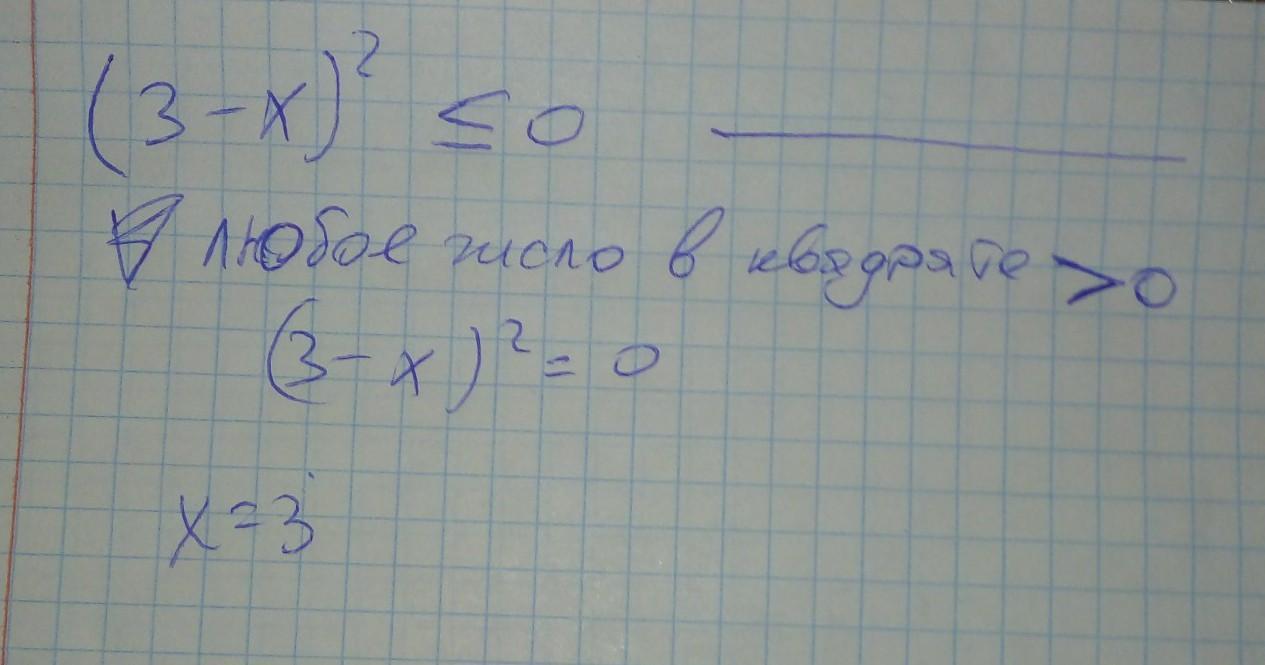 (3-x)² ≤ 0
∀ любое число в квадрате >0
(3-x)² = 0
x=3